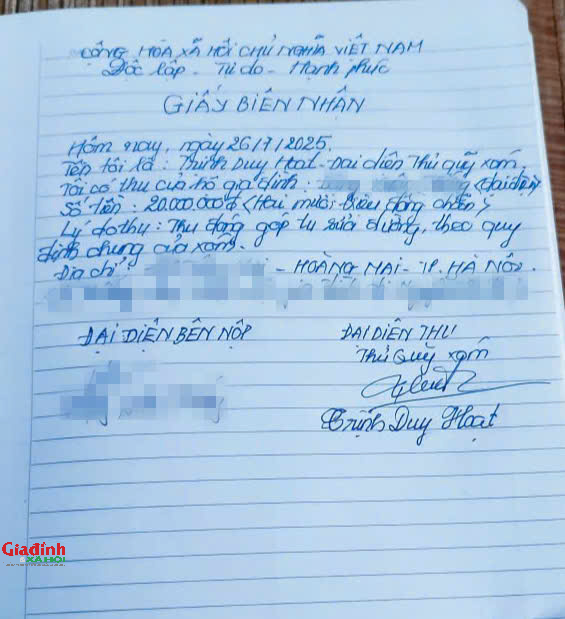 CỘNG HÒA XÃ HỘI CHỦ NGHĨA VIỆT NAM
Độc lập - Tự do - Hạnh phúc
GIẤY BIÊN NHẬN
Hôm nay, ngày 26/7/2025.
Tên tôi là: Trịnh Duy Hoạt - Đại diện Thủ quỹ xóm.
Tôi có thu của hộ gia đình: <đại diện>
Số tiền: 20.000.000đ <Hai mươi triệu đồng chẵn>
Lý do thu: Thu đóng góp tu sửa đường, theo quy
định chung của xóm.
Địa chỉ: - HOÀNG MAI - TP. HÀ NỘI.
ĐẠI DIỆN BÊN NỘP
ĐẠI DIỆN THU
Thủ Quỹ xóm
Trịnh Duy Hoạt
Giađình
& XÃ HỘI